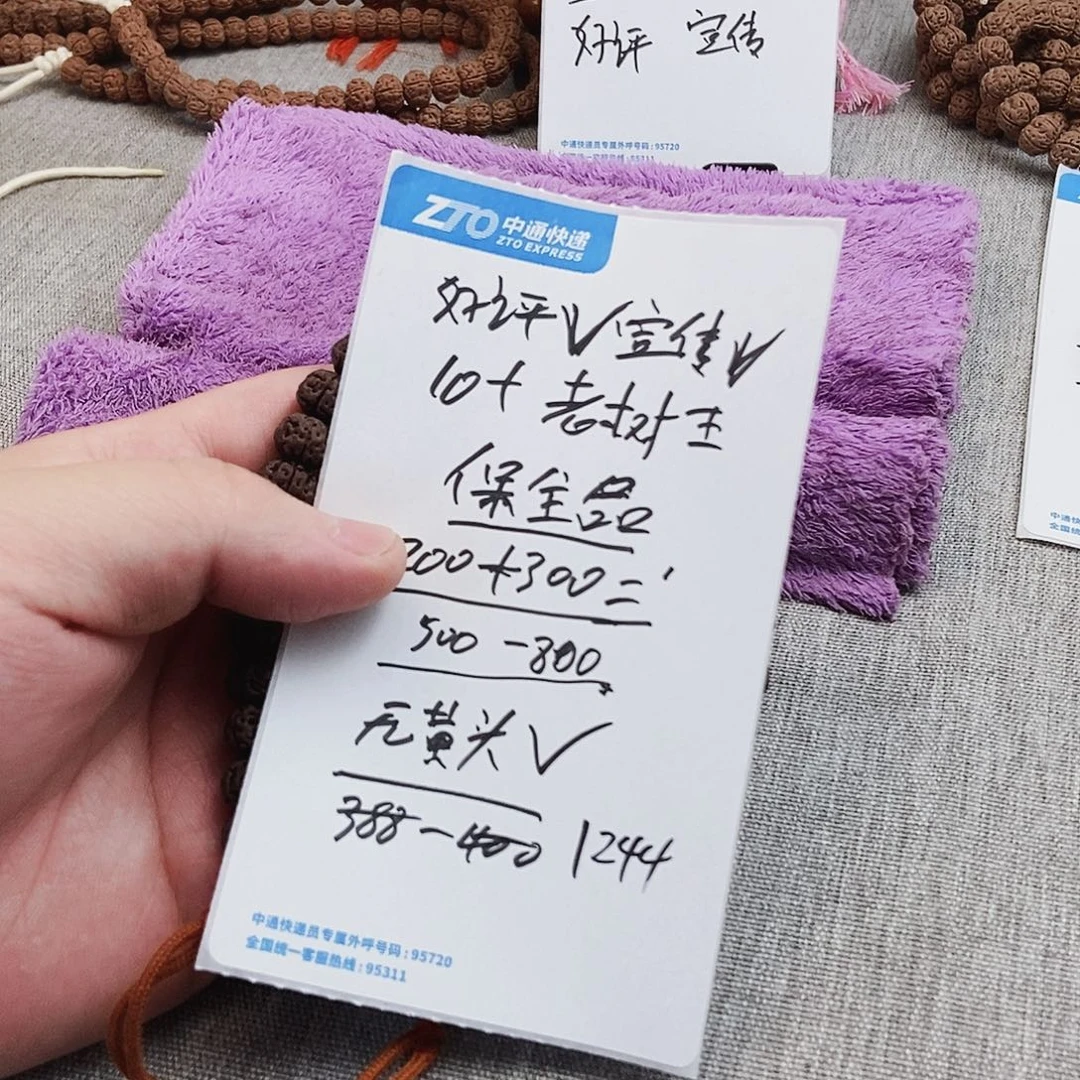 好评 宣传
中通快递员专属外呼号码:95720
ZTO 中通快递
ZTO EXPRESS
好评√宣传√
10+ 老树王
保全品
200+300=
500-800
无黄头√
388-400 1244
中通快递员专属外呼号码:95720
全国统一客服热线:95311